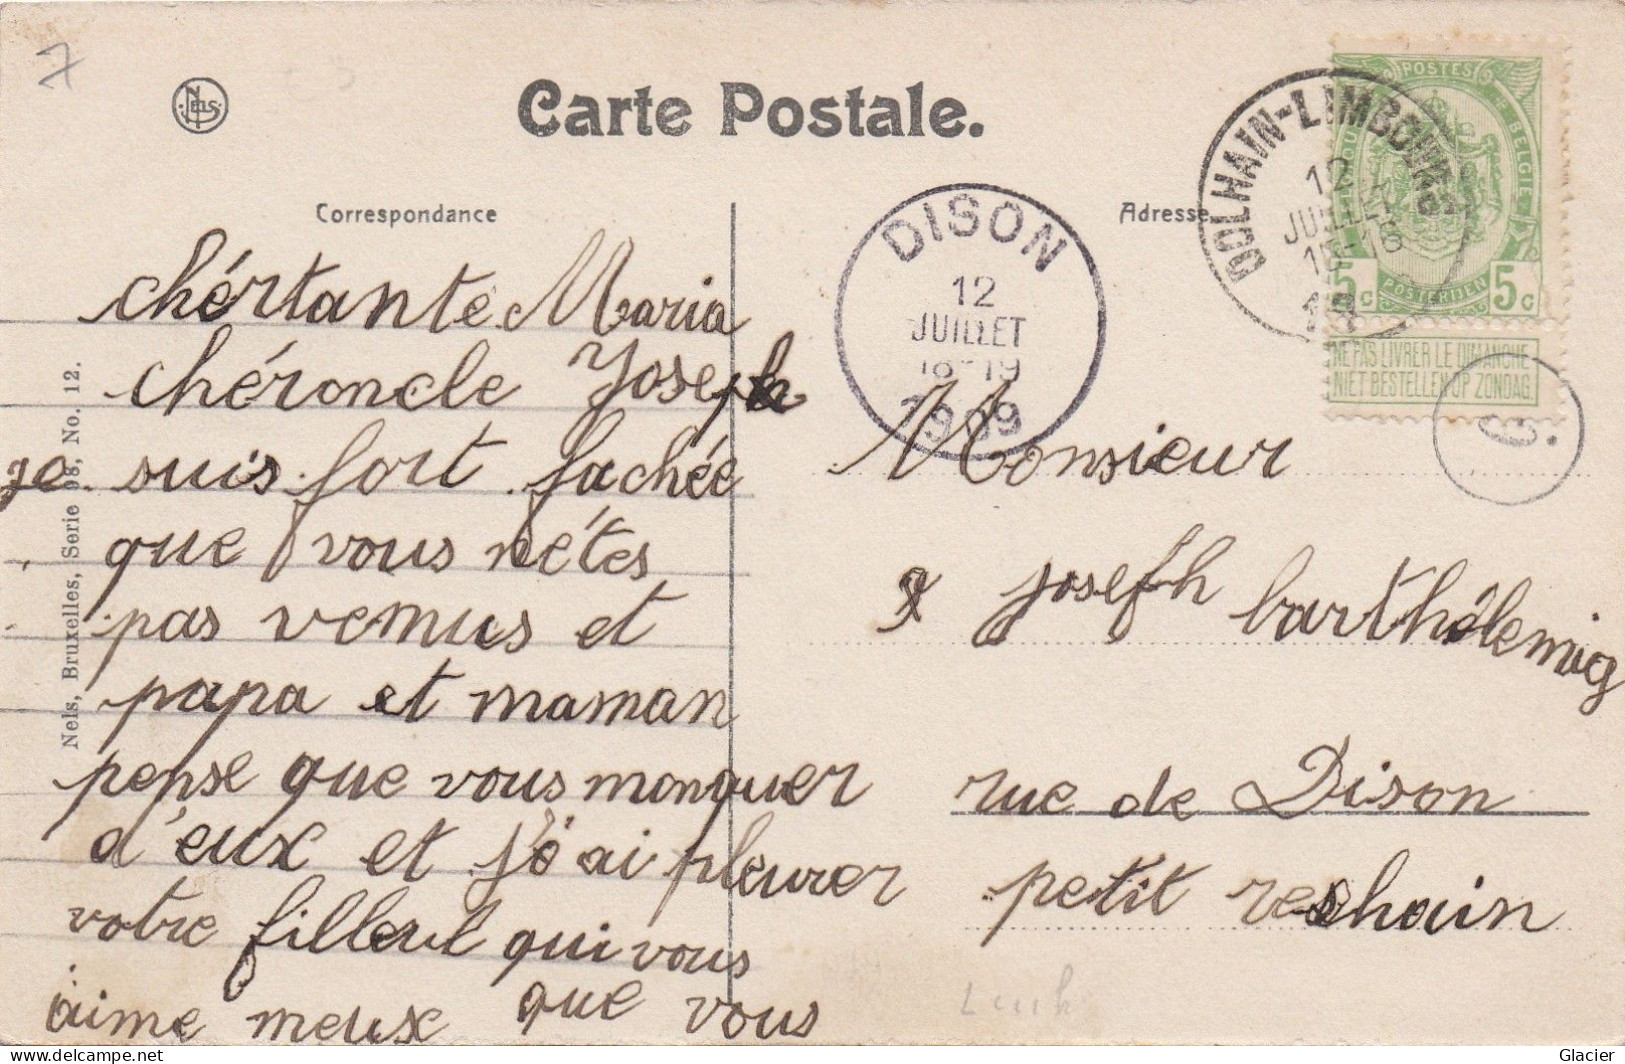 7
NELS
Carte Postale.
Correspondance
Adresse
DOLHAIN-LIMBOURG
12
JUILLET
15-16
19
POSTES
BELGIE
5c POSTERIJEN 5c
NE PAS LIVRER LE DIMANCHE
NIET BESTELLEN OP ZONDAG
DISON
12
JUILLET
18-19
1909
Nels, Bruxelles, Serie 98, No. 12.
chértante Maria
chéroncle Joseph
je suis fort fachée
que vous nétes
pas venus et
papa et maman
pense que vous monquer
d'eux et j'ai pleurer
votre filleul qui vous
aime meux que vous
Monsieur
Joseph barthélemig
rue de Dison
petit reshain
Glacier
delcampe.net